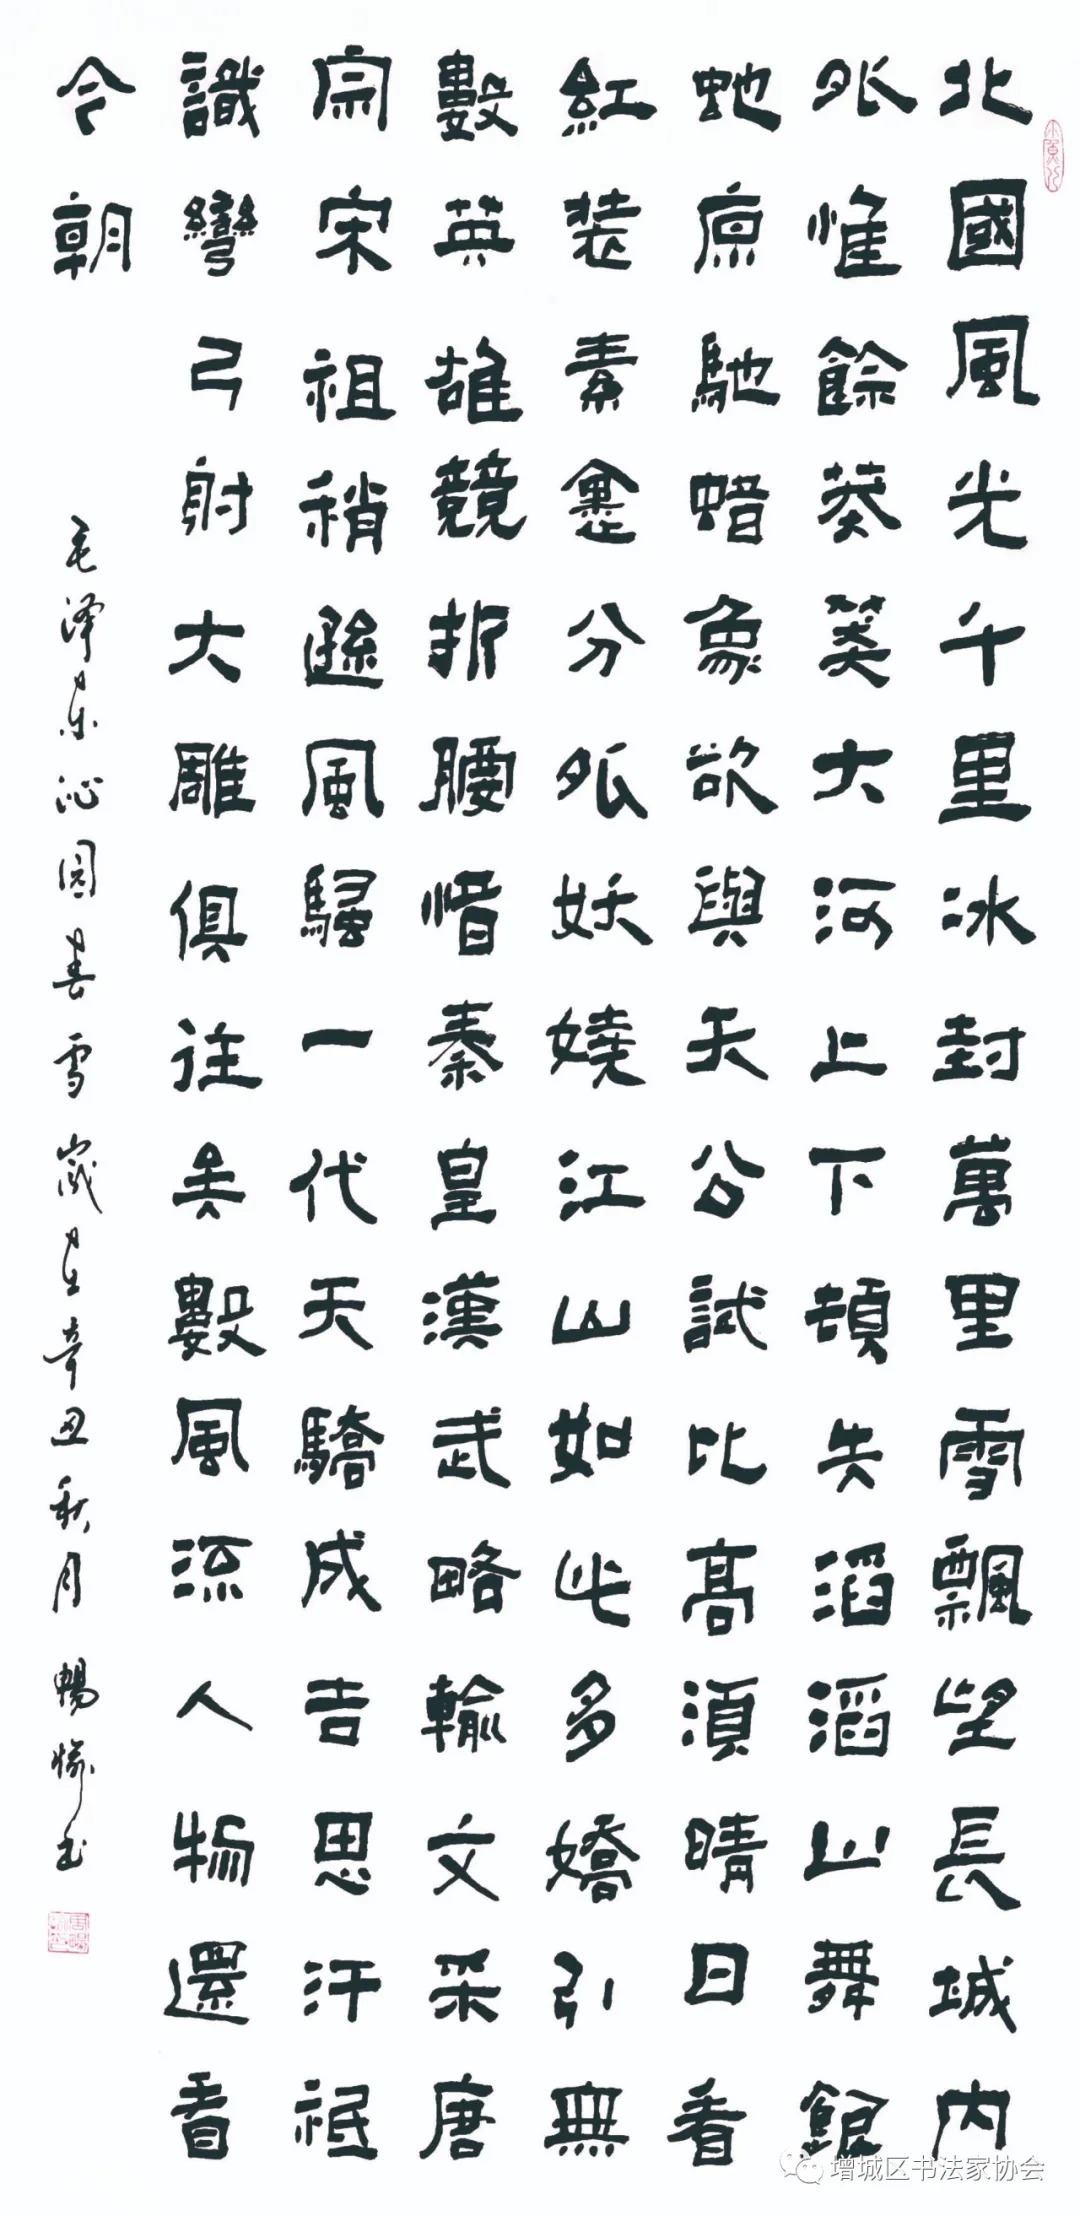 北國風光千里冰封萬里雪飄望長城内
外惟餘莽莽大河上下頓失滔滔山舞銀
虵原馳蜡象欲與天公試比高須晴日看
紅装素裹分外妖嬈江山如此多嬌引無
數英雄競折腰惜秦皇漢武略輸文采唐
宗宋祖稍遜風騷一代天驕成吉思汗祗
識彎弓射大雕俱往矣數風流人物還看
今朝
毛泽东沁園春雪歲在辛丑秋月暢
增城区书法家协会